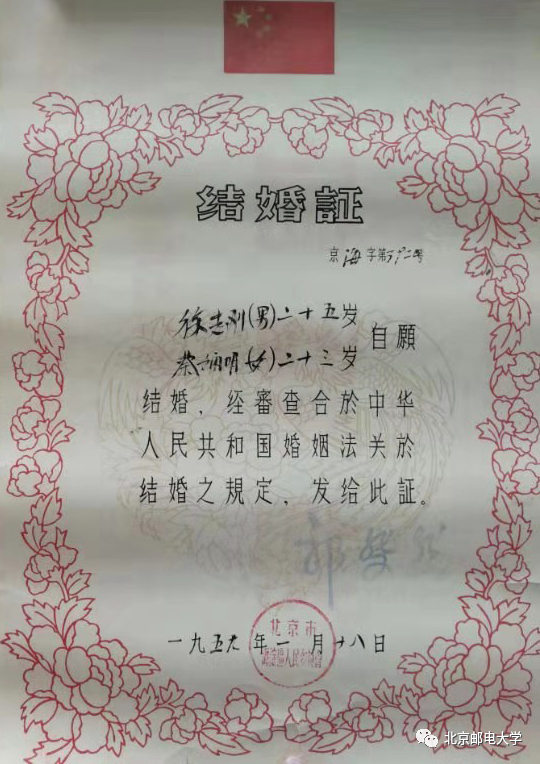 结婚証
京海字第
徐志刚(男)二十五岁
蔡炳明(女)二十三岁
自願
结婚，经審查合於中华
人民共和国婚姻法关於
结婚之規定，发给此証。
一九五九年一月十八日
北京市
海淀區人民委員會
北京邮电大学